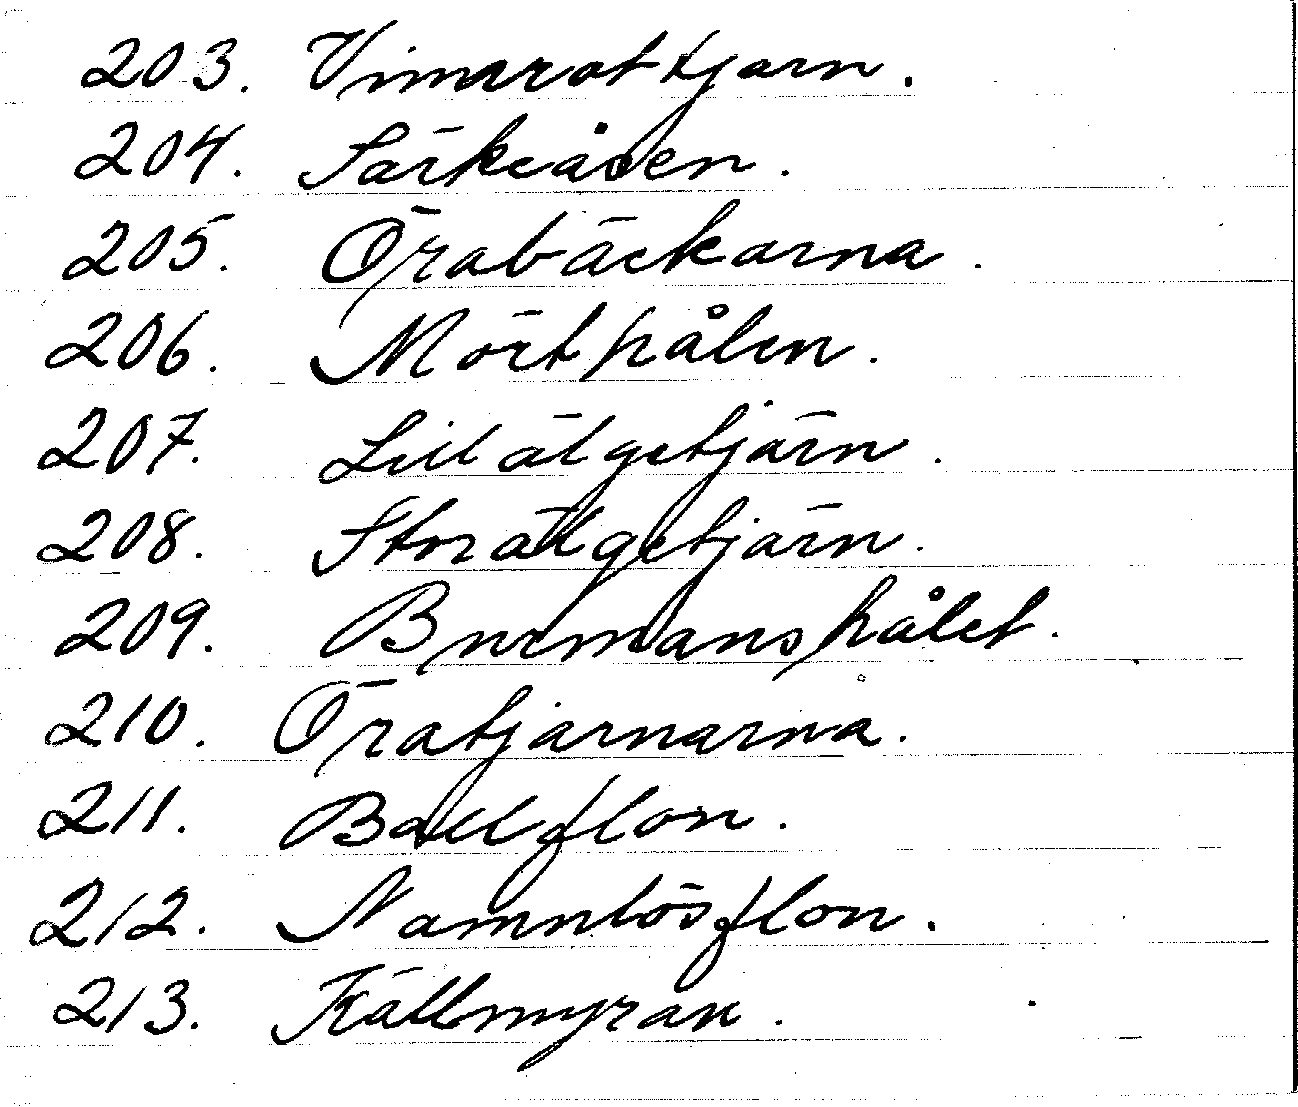 203. Vimarottjarn.
204. Särkeåsen.
205. Örabäckarna.
206. Mörthålen.
207. Lillälgetjärn.
208. Storälgetjärn.
209. Burmanshålet.
210. Öratjarnarna.
211. Ballflon.
212. Namnlösflon.
213. Källmyran.